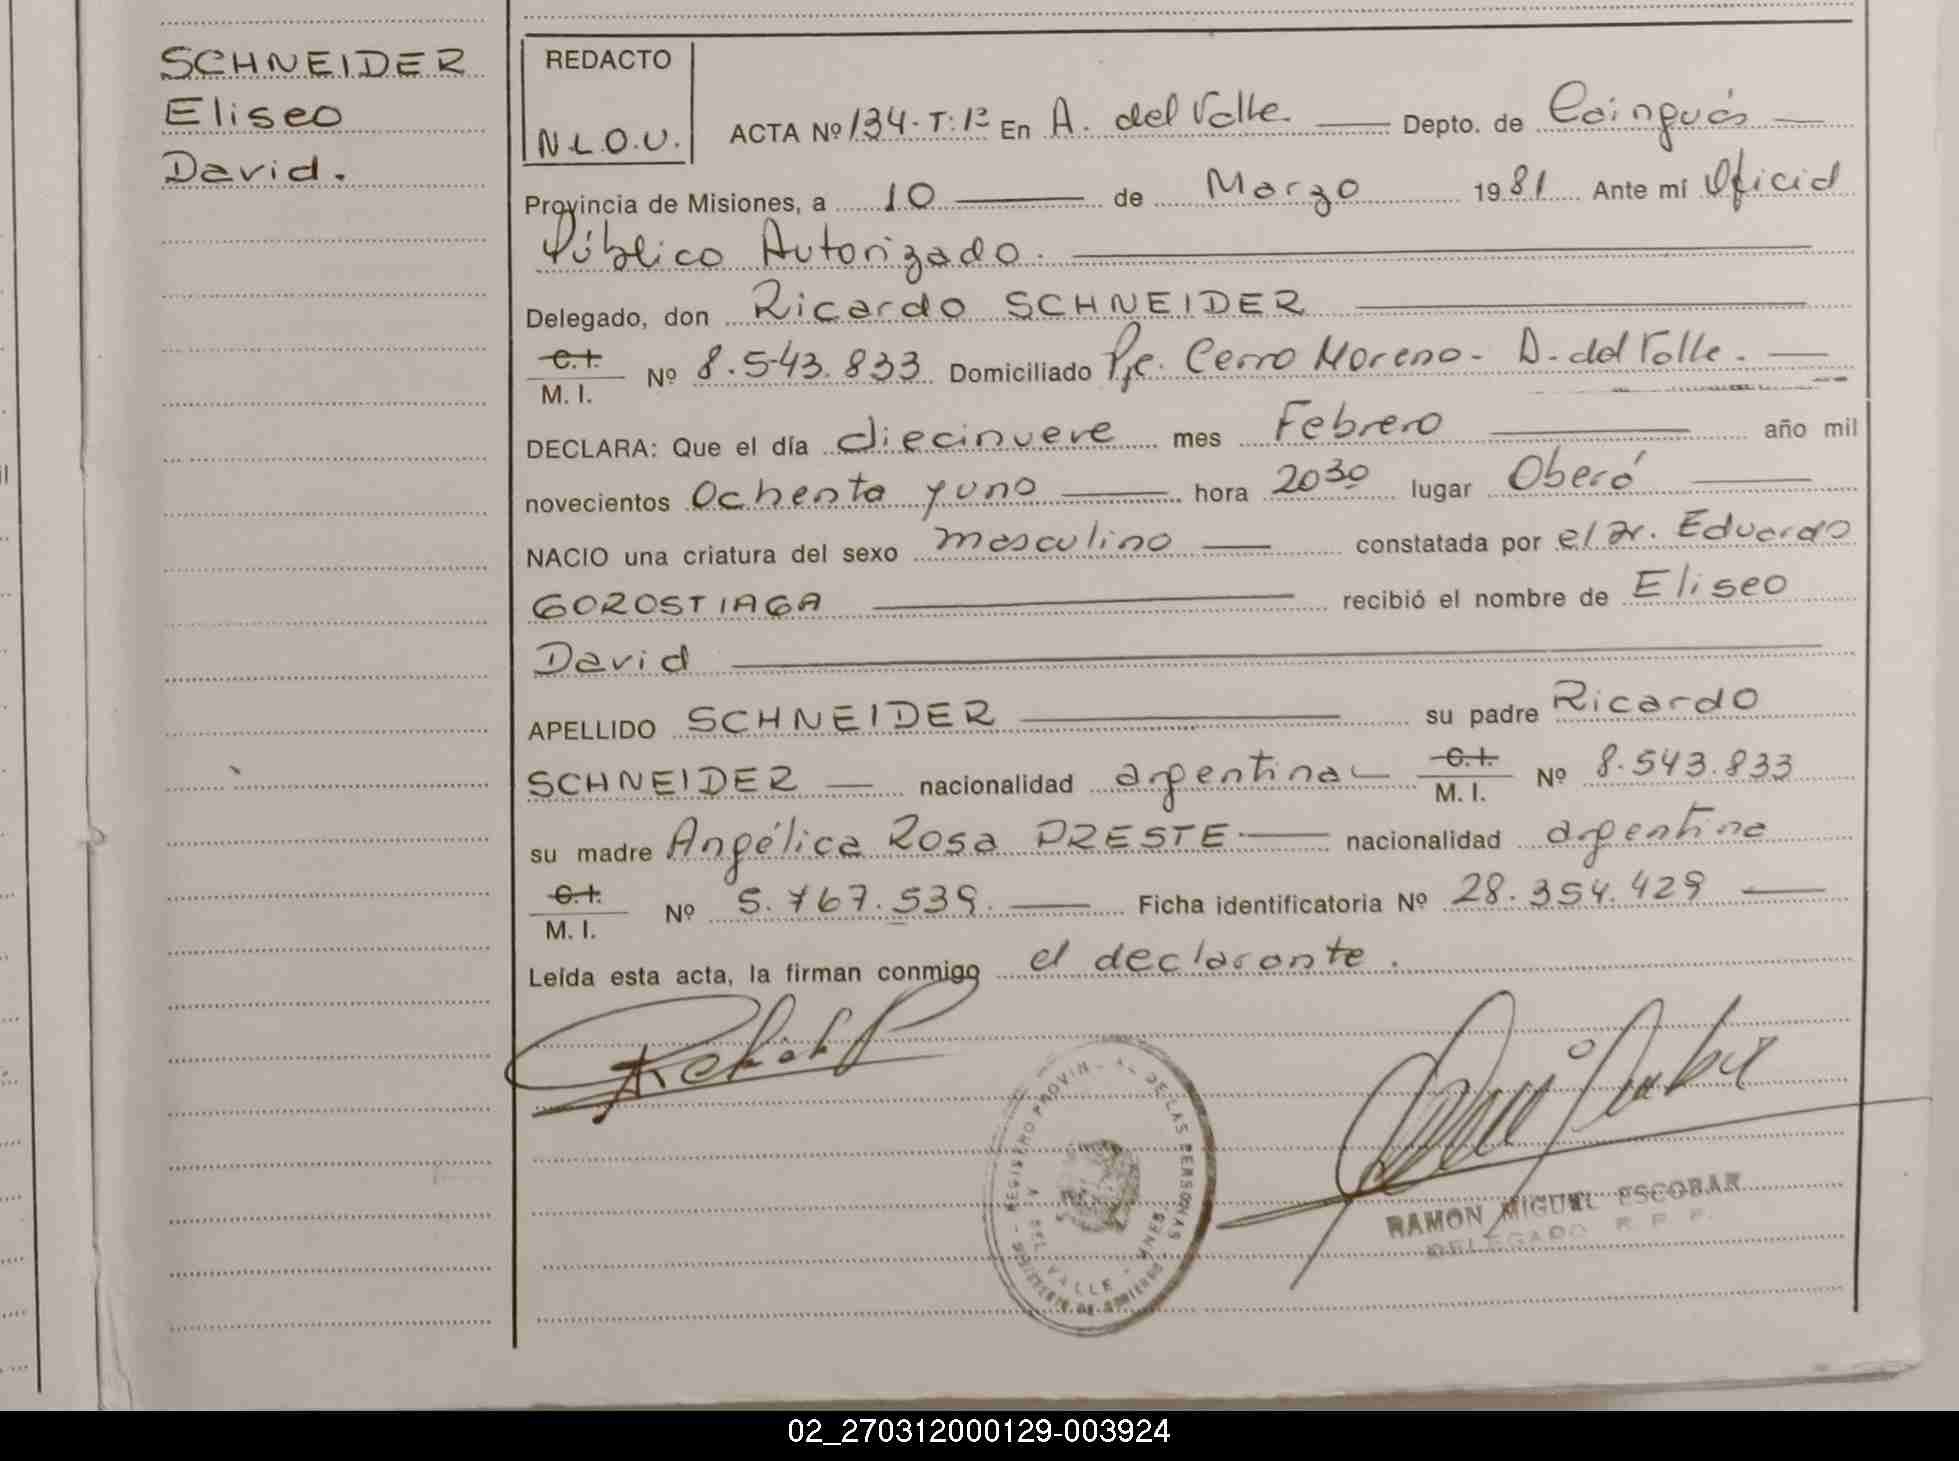 SCHNEIDER
Eliseo
David.
REDACTO
N.L.O.U.
ACTA Nº 134-T:1º En A. del Valle. Depto. de Cainguás
Provincia de Misiones, a 10 de Marzo 1981 Ante mí Oficial
Público Autorizado.
Delegado, don Ricardo SCHNEIDER
C.I.
M. I. Nº 8.543.833 Domiciliado Pje. Cerro Moreno - A. del Valle.
DECLARA: Que el día diecinueve mes Febrero año mil
novecientos Ochenta y uno hora 20³⁰ lugar Oberá
NACIO una criatura del sexo masculino constatada por el Dr. Eduardo
GOROSTIAGA recibió el nombre de Eliseo
David
APELLIDO SCHNEIDER su padre Ricardo
SCHNEIDER nacionalidad argentina C.I. M. I. Nº 8.543.833
su madre Angélica Rosa PRESTE nacionalidad argentina
C.I.
M. I. Nº 5.767.539. Ficha identificatoria Nº 28.354.429
Leída esta acta, la firman conmigo el declarante.
REGISTRO PROVIN DE LAS PERSONAS
A DEL VALLE - MNES
RAMON MIGUEL ESCOBAR
DELEGADO R. P. P.
02_270312000129-003924